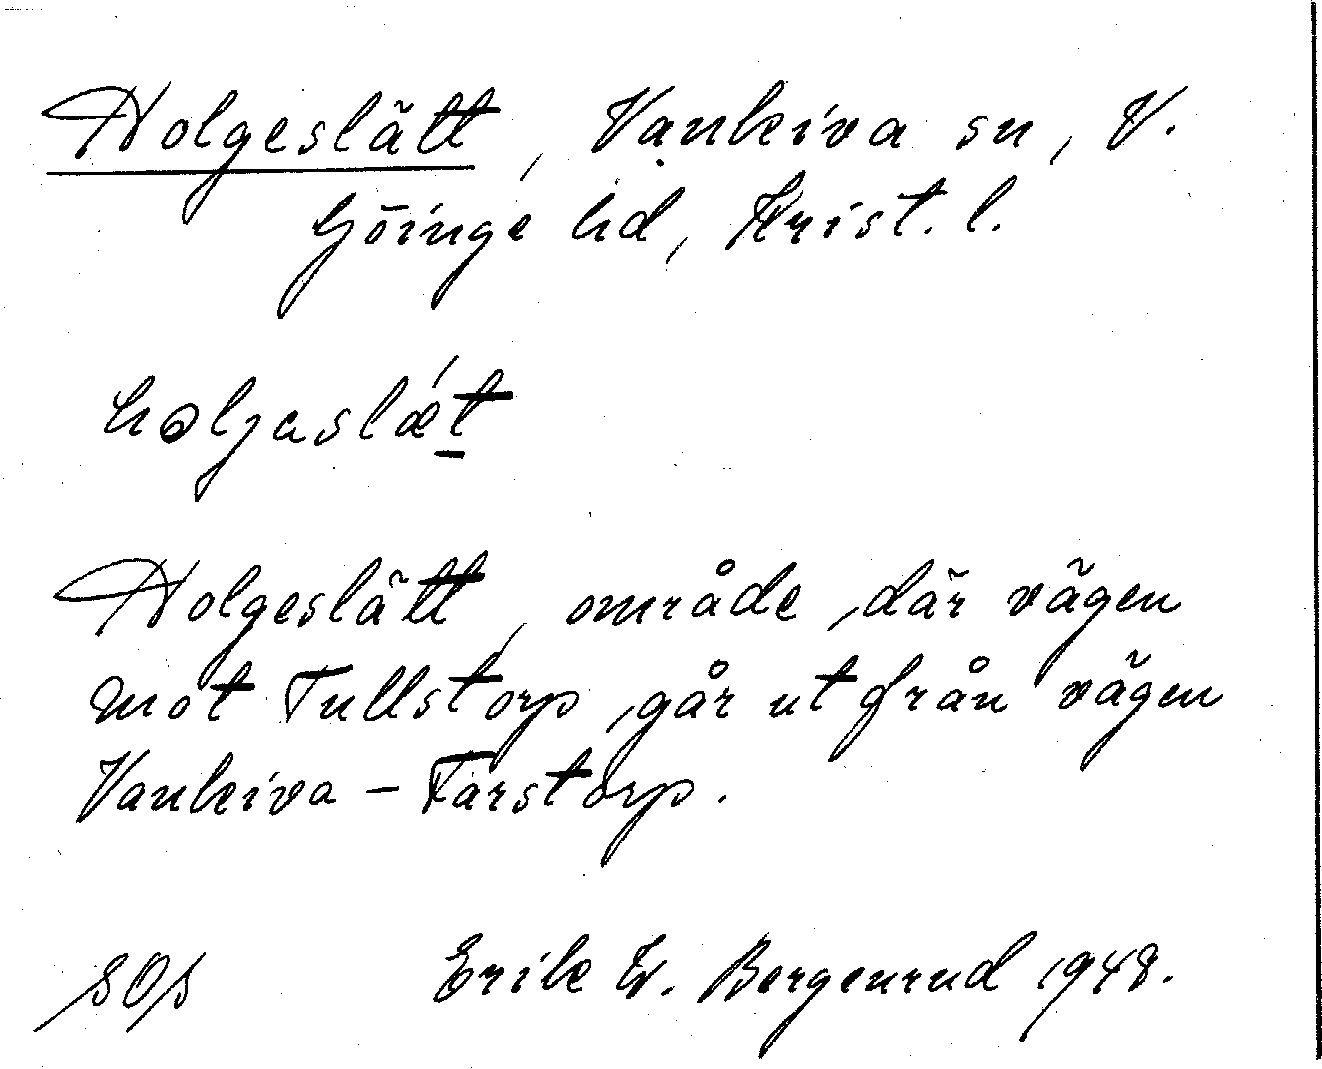 Holgeslätt, Vankiva sn, V.
Göinge hd, Krist. l.
hɷljaslǽt
Holgeslätt, område, där vägen
mot Tullstorp går ut från vägen
Vankiva – Farstorp.
SOS Erik W. Bergenrud 1948.